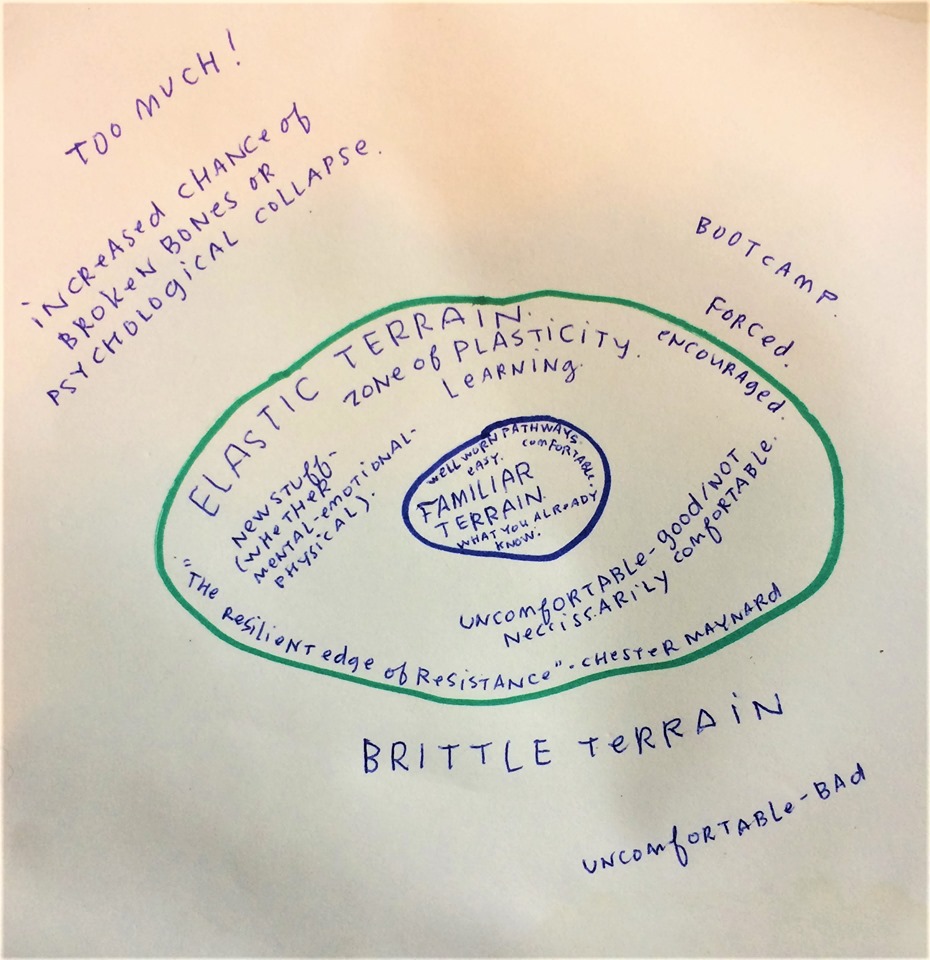 TOO MUCH!
INCREASED CHANCE of
BROKEN BONES OR
PSYCHOLOGICAL COLLAPSE.
BOOTCAMP
FORCED.
ENCOURAGED.
ELASTIC TERRAIN.
ZONE of PLASTICITY.
LEARNING.
NEW STUFF-
(WHETHER
MENTAL-EMOTIONAL-
PHYSICAL).
WELL WORN PATHWAYS.
EASY.
COMFORTABLE.
FAMILIAR
TERRAIN.
WHAT YOU ALREADY
KNOW.
UNCOMFORTABLE-good/NOT
NECCISSARILY COMFORTABLE.
"THE RESILIENT edge of RESISTANCE"-CHESTER MAYNARD
BRITTLE TERRAIN
UNCOMFORTABLE-BAD